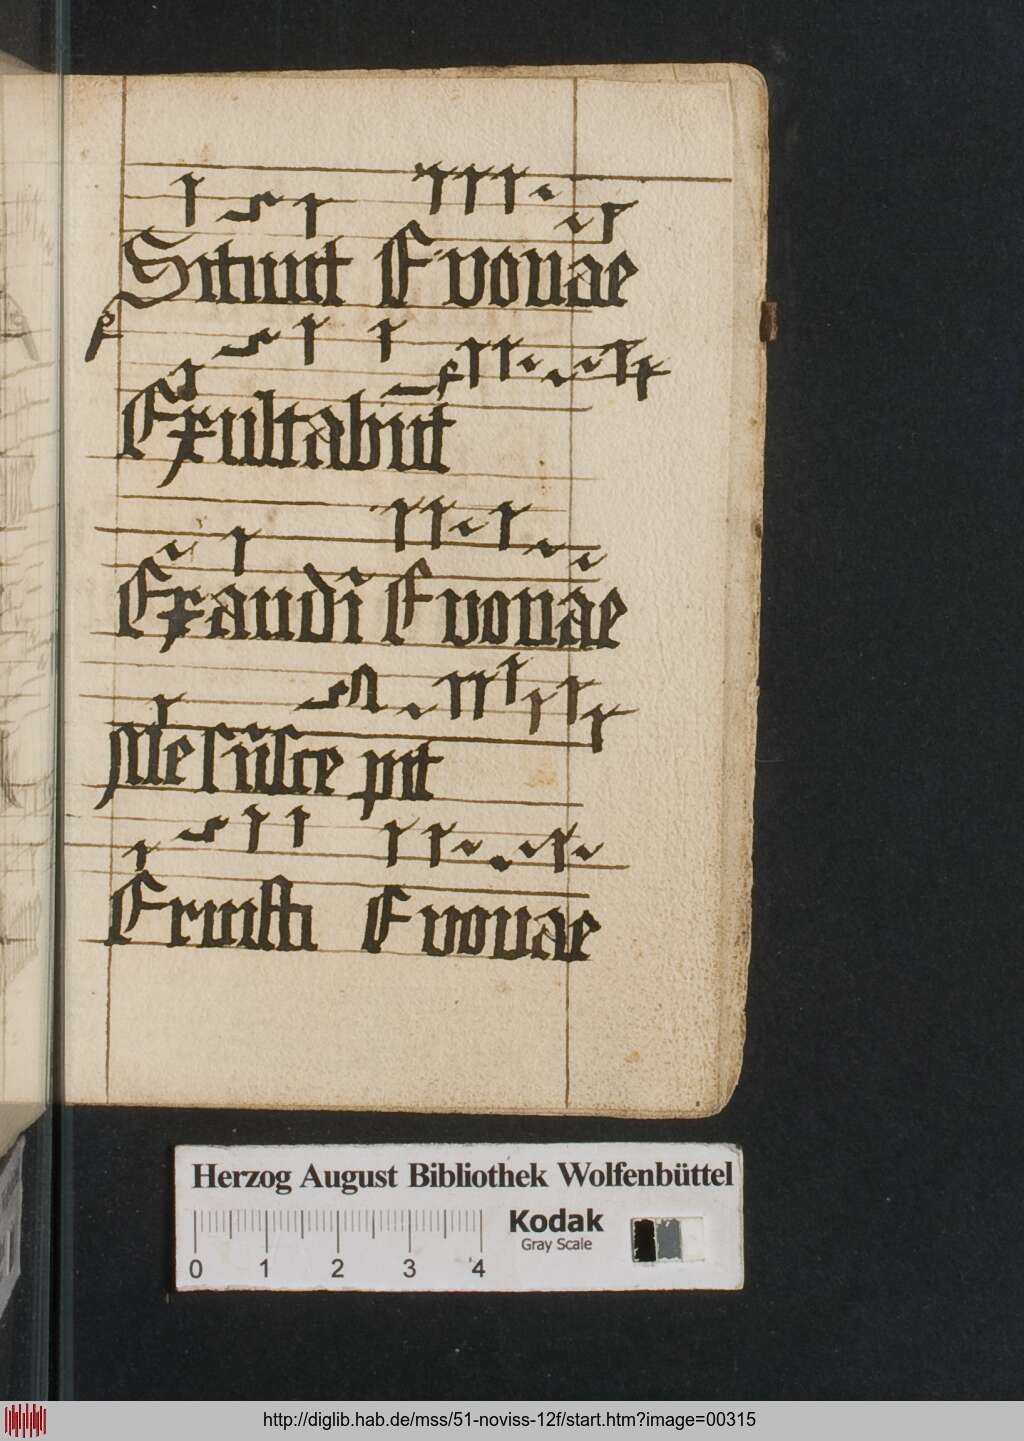 Sitiuit Evovae
Exultabūt
Exaudi Evovae
Me sūsce pit
Eruisti Evovae
Herzog August Bibliothek Wolfenbüttel
Kodak
Gray Scale
0 1 2 3 4
http://diglib.hab.de/mss/51-noviss-12f/start.htm?image=00315